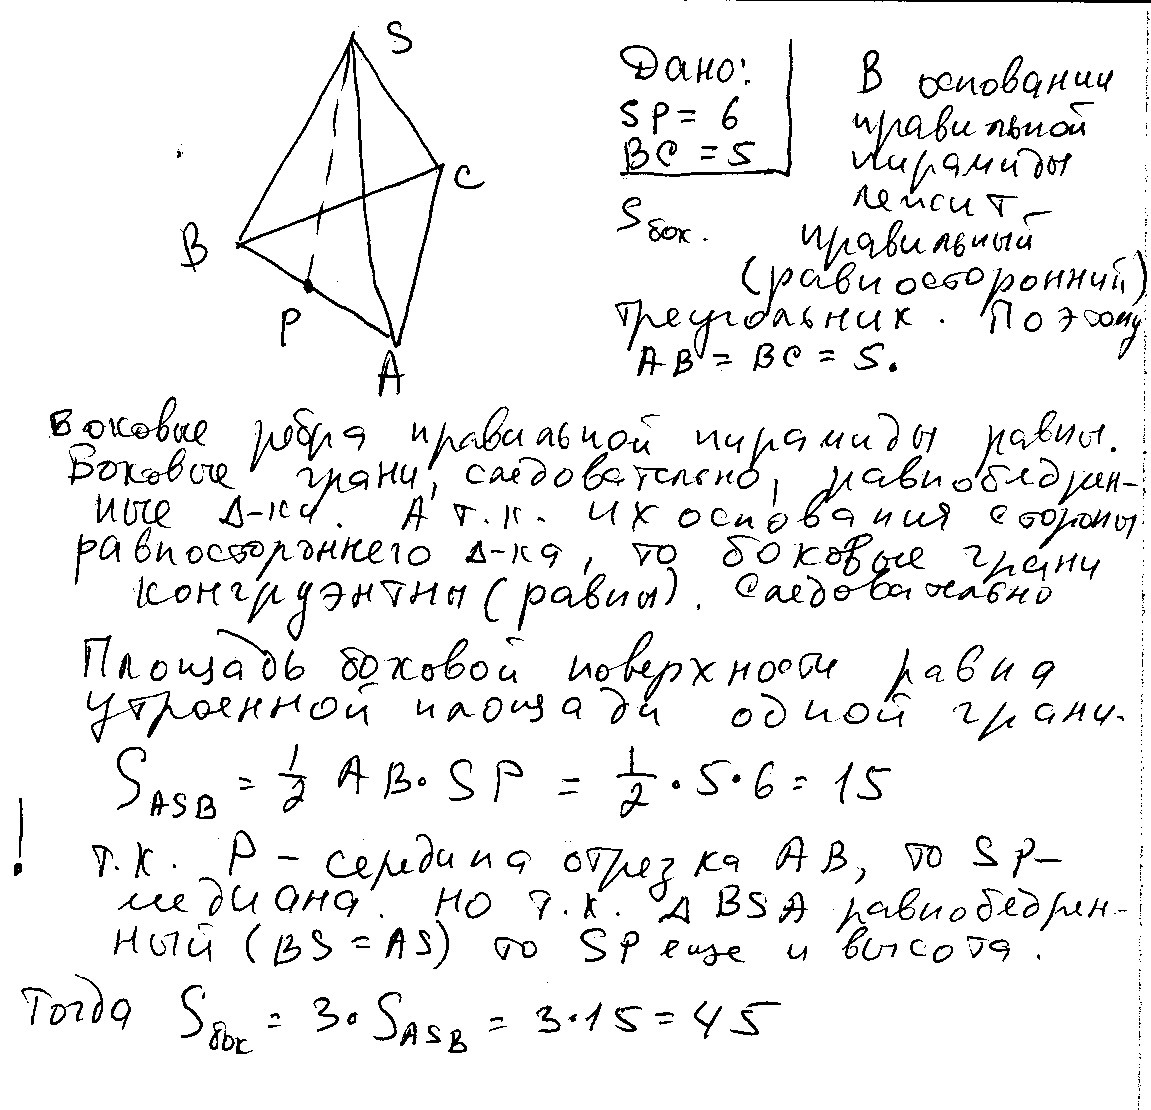 S
C
B
P
A
Дано:
SP = 6
BC = 5
Sбок.
В основании
правильной
пирамиды
лежит
правильный
(равносторонний)
треугольник. Поэтому
AB = BC = 5.
Боковые ребра правильной пирамиды равны.
Боковые грани, следовательно, равнобедрен-
ные Δ-ки. А т.к. их основания стороны
равностороннего Δ-ка, то боковые грани
конгруэнтны (равны). Следовательно
Площадь боковой поверхности равна
утроенной площади одной грани.
S_ASB = 1/2 AB · SP = 1/2 · 5 · 6 = 15
! т.к. P – середина отрезка AB, то SP –
медиана. Но т.к. Δ BSA равнобедрен-
ный (BS = AS) то SP еще и высота.
Тогда Sбок = 3 · S_ASB = 3 · 15 = 45